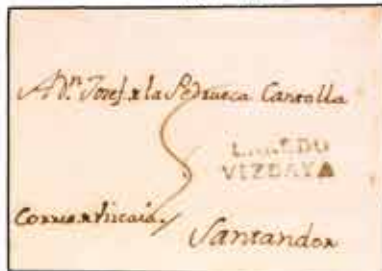 A Dⁿ. Josef de la Pedrueca Cantolla
5
LAREDO
VIZCAYA
Correo de Vizcaia.
Santander